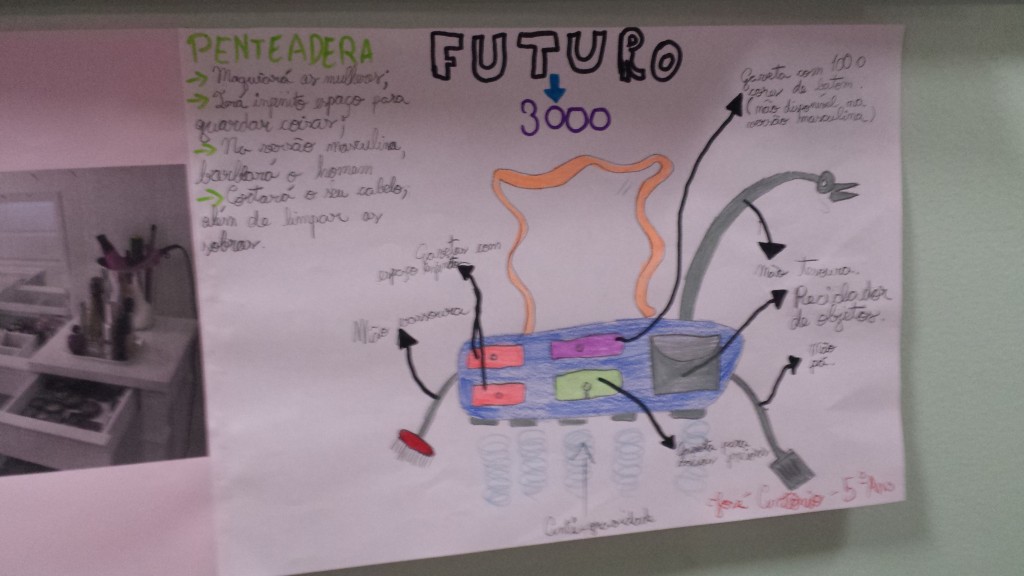 PENTEADERA
→ Maquiará as mulheres;
→ Terá infinito espaço para
guardar coisas;
→ Na versão masculina,
barbeará o homem
→ Cortará o seu cabelo,
além de limpar as
sobras.
FUTURO
3000
Gaveta com 1000
cores de batom.
(não disponível na
versão masculina)
Gavetas com
espaço
Mão vassoura
Mão Tesoura.
Reciclador
de objetos.
Mão
pá.
Gaveta para
José Antônio - 5º Ano